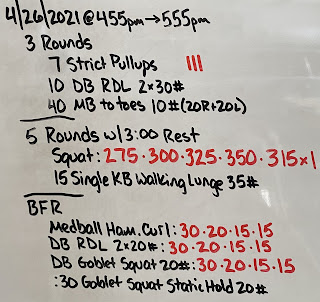 4/26/2021 @ 455pm → 555pm
3 Rounds
7 Strict Pullups III
10 DB RDL 2×30#
40 MB to toes 10# (20R+20L)
5 Rounds w/3:00 Rest
Squat: 275·300·325·350·315×1
15 Single KB Walking Lunge 35#
BFR
Medball Ham. Curl: 30·20·15·15
DB RDL 2×20#: 30·20·15·15
DB Goblet Squat 20#: 30·20·15·15
:30 Goblet Squat Static Hold 20#